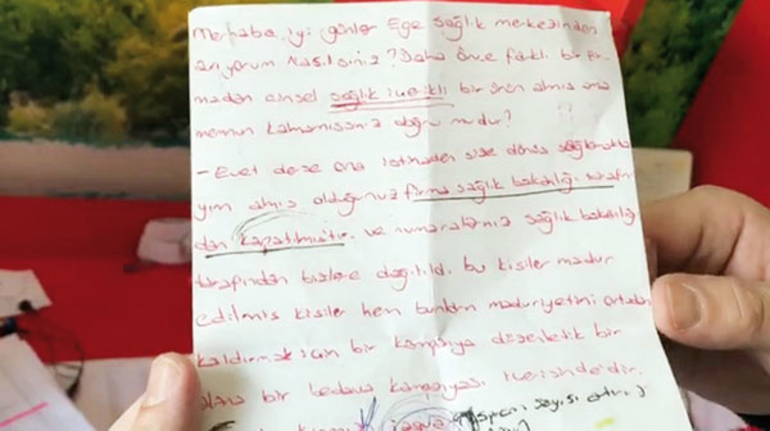 Merhaba iyi günler Ege sağlık merkezinden
arıyorum Nasılsınız? Daha önce farklı bir fir-
madan cinsel sağlık içerikli bir ürün almış ama
memnun kalmamıssınız doğru mudur?
- Evet derse ona istinaden size dönüş sağlamakta
yım almış olduğunuz firma sağlık bakanlığı tarafın
dan kapatılmıştır. ve numaralarınız sağlık bakanlığı
tarafından bizlere dağıtıldı. bu kişiler madur
edilmiş kişiler hem bunların maduriyetini ortadan
kaldırmak için bir kampanya düzenledik bir
alana bir bedava kampanyası içerisindedir.
sayısı